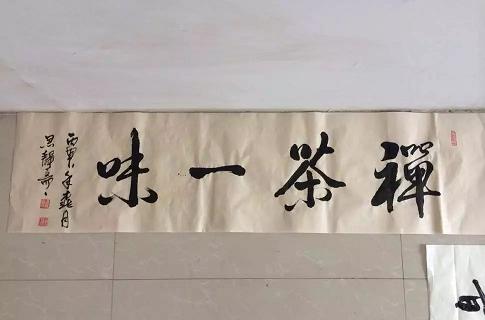 禪茶一味
丙申年春月
思靜齋